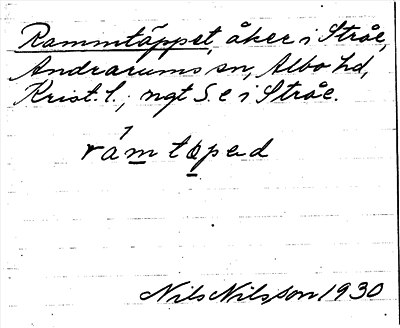 Rammtäppet, åker i Stråe,
Andrarums sn, Albo hd,
Krist. l., ngt S. e i Stråe.
rám tǫpəd
Nils Nilsson 1930